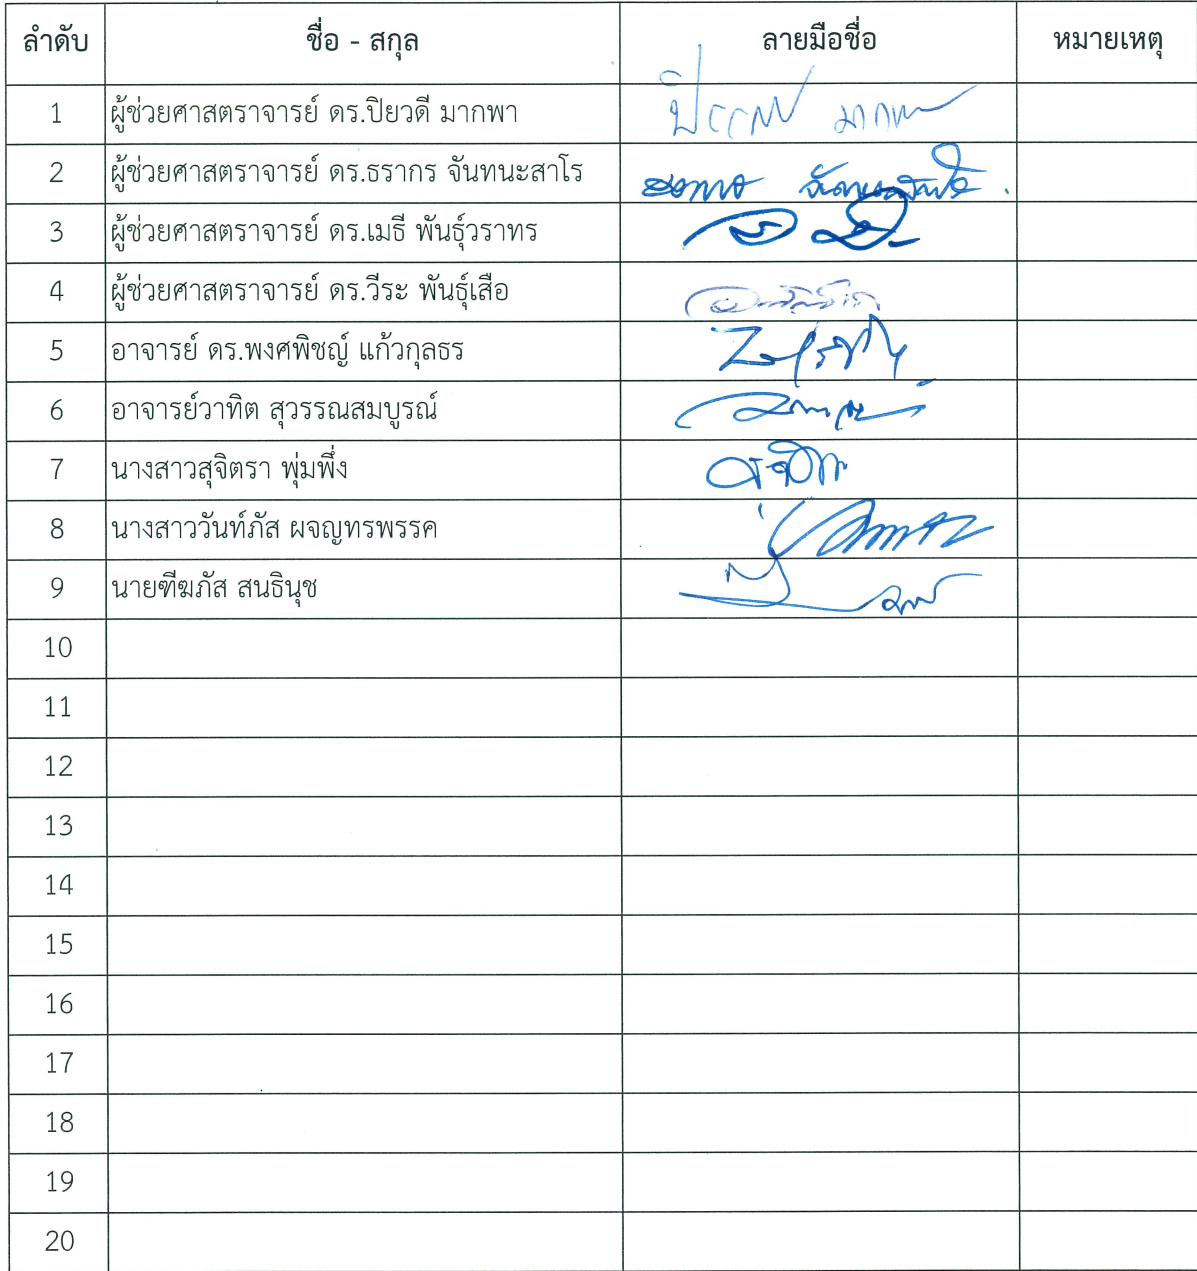 ลำดับ ชื่อ - สกุล ลายมือชื่อ หมายเหตุ
1 ผู้ช่วยศาสตราจารย์ ดร.ปิยวดี มากพา
2 ผู้ช่วยศาสตราจารย์ ดร.ธรากร จันทนะสาโร
3 ผู้ช่วยศาสตราจารย์ ดร.เมธี พันธุ์วราทร
4 ผู้ช่วยศาสตราจารย์ ดร.วีระ พันธุ์เสือ
5 อาจารย์ ดร.พงศพิชญ์ แก้วกุลธร
6 อาจารย์วาทิต สุวรรณสมบูรณ์
7 นางสาวสุจิตรา พุ่มพึ่ง
8 นางสาววันท์ภัส ผจญทรพรรค
9 นายฑีฆภัส สนธินุช
10
11
12
13
14
15
16
17
18
19
20